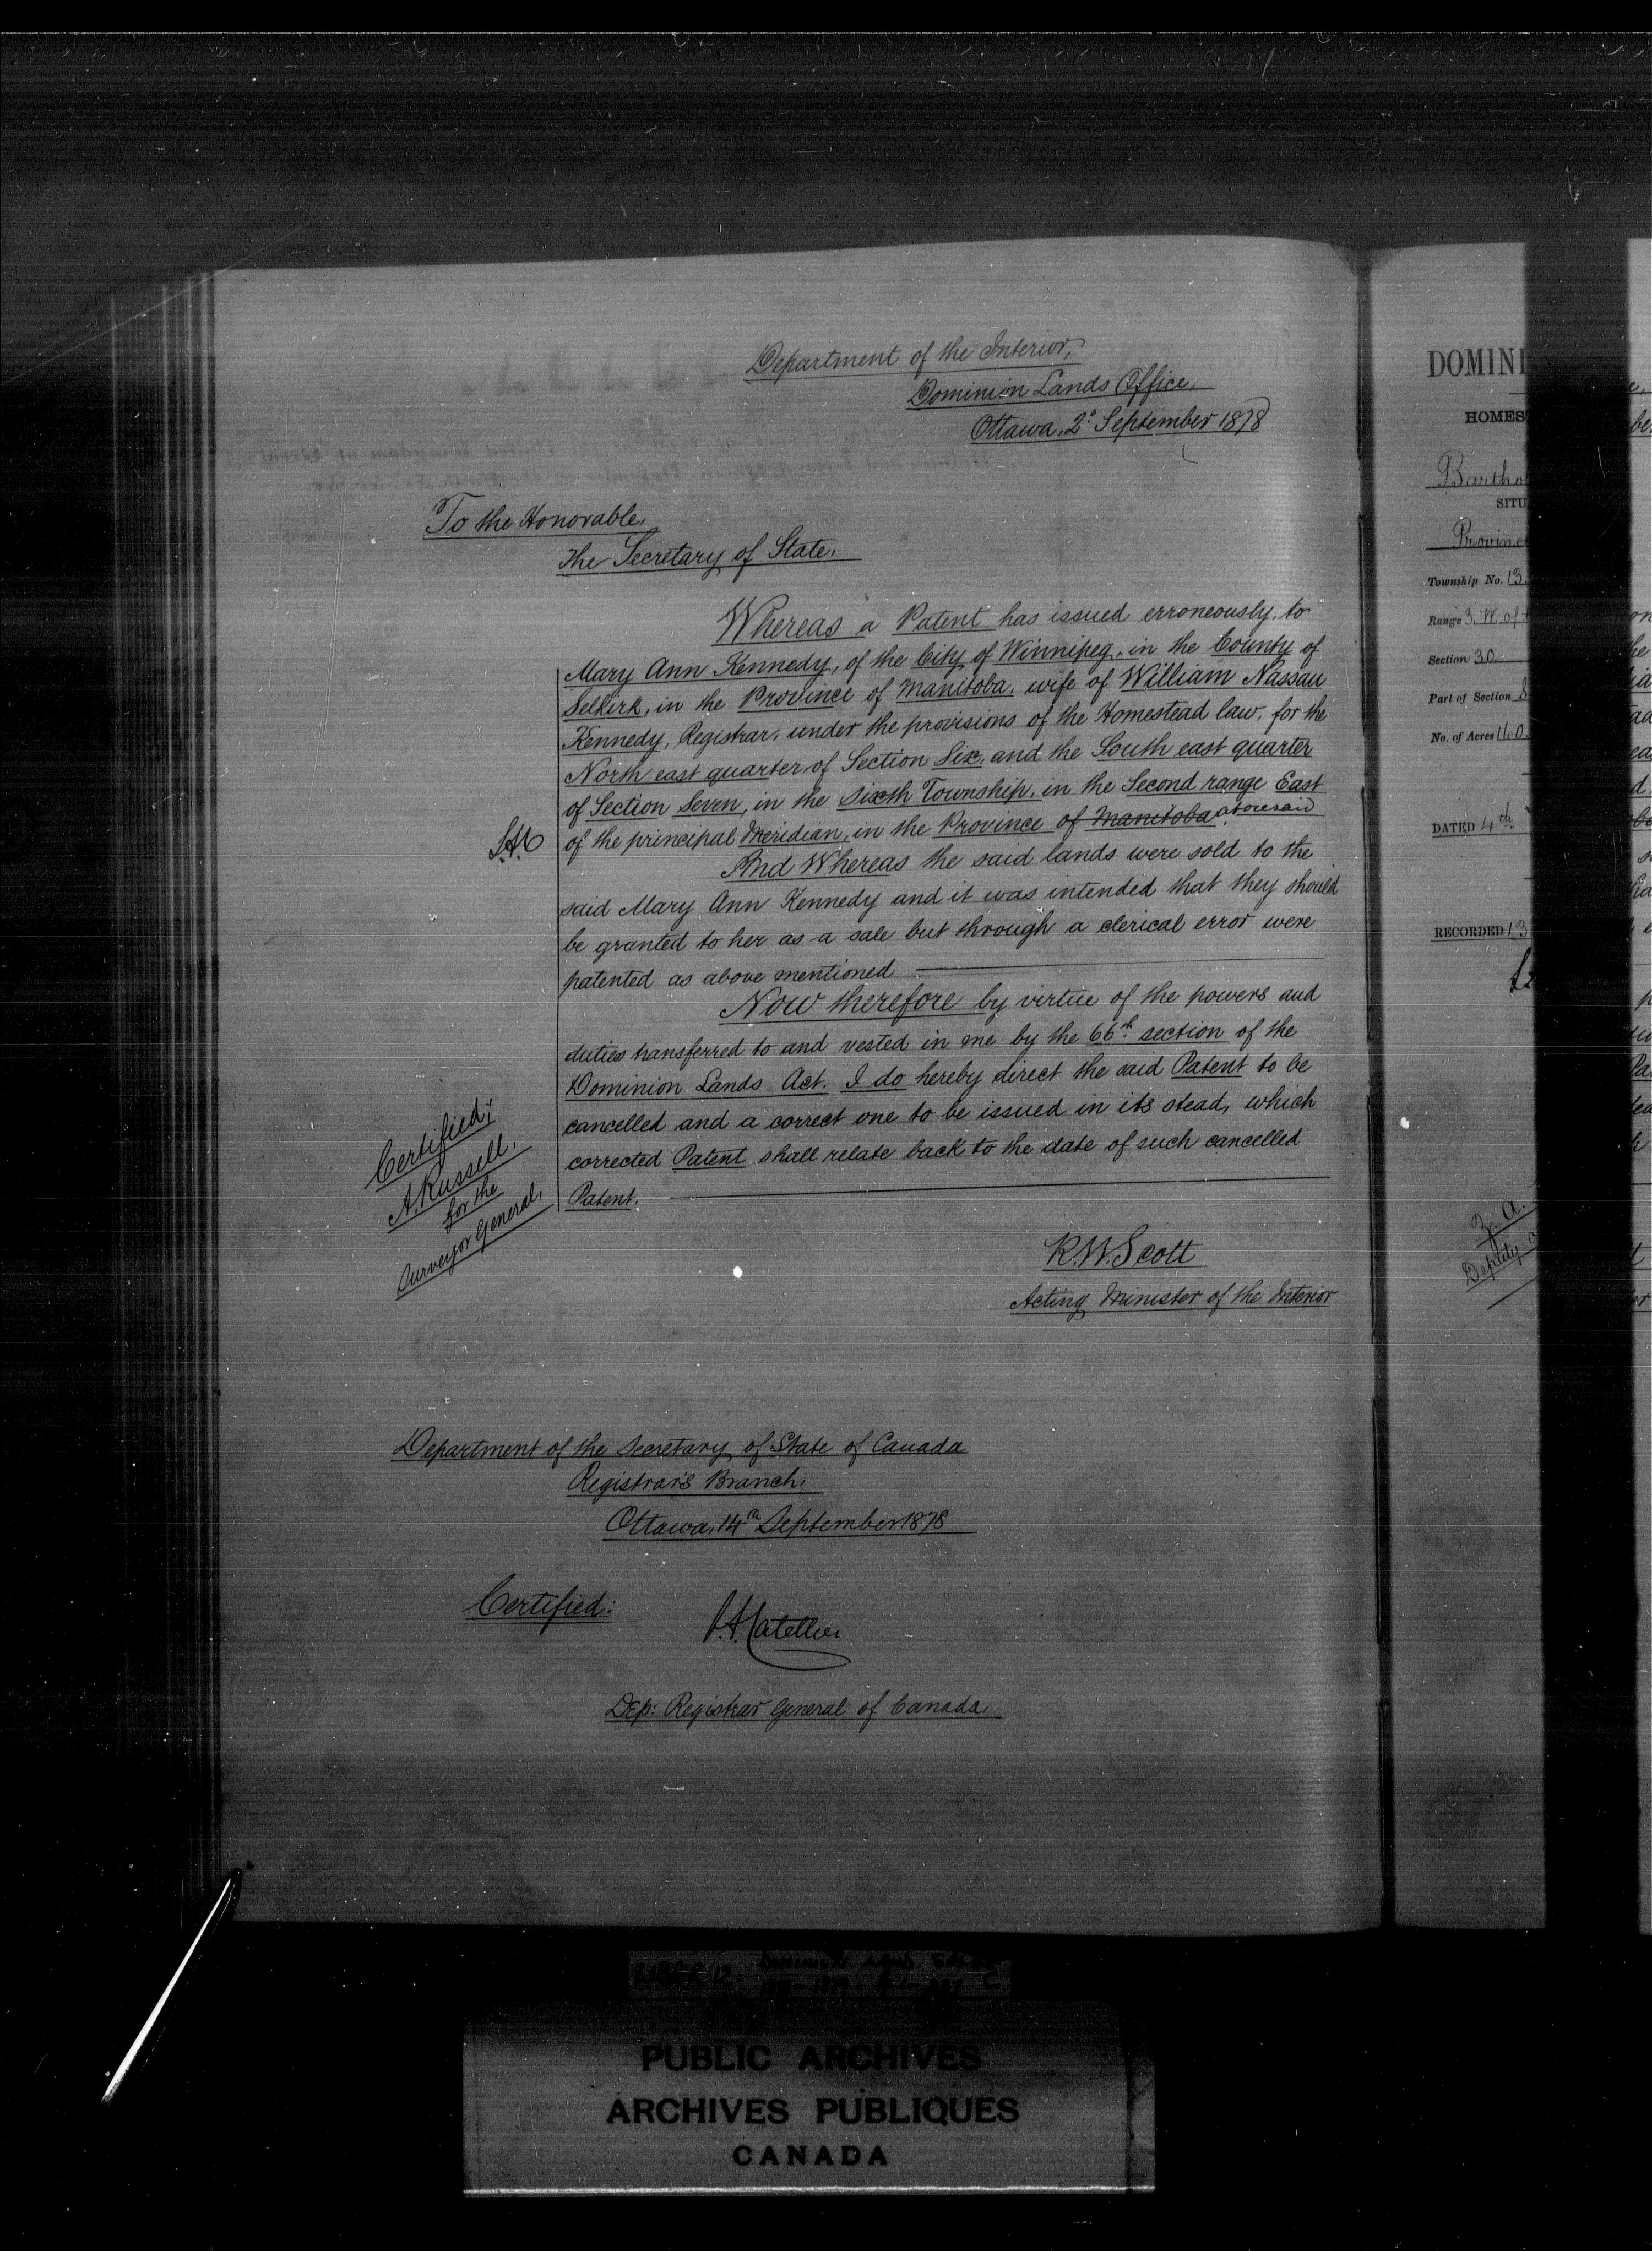 Department of the Interior,
Dominion Lands Office,
Ottawa, 2d September 1878
To the Honorable,
the Secretary of State.
Whereas a Patent has issued erroneously, to
Mary Ann Kennedy, of the City of Winnipeg, in the County of
Selkirk, in the Province of Manitoba, wife of William Nassau
Kennedy, Registrar, under the provisions of the Homestead law, for the
North east quarter of Section Six, and the South east quarter
of Section Seven, in the Sixth Township, in the Second range East
of the principal Meridian, in the Province of Manitoba aforesaid
And Whereas the said lands were sold to the
said Mary Ann Kennedy and it was intended that they should
be granted to her as a sale but through a clerical error were
patented as above mentioned
Now therefore by virtue of the powers and
duties transferred to and vested in me by the 66th section of the
Dominion Lands Act. I do hereby direct the said Patent to be
cancelled and a correct one to be issued in its stead, which
corrected Patent shall relate back to the date of such cancelled
Patent.
Certified;
A. Russell.
for the
Surveyor General,
R.W. Scott
Acting Minister of the Interior
Department of the Secretary of State of Canada
Registrar's Branch.
Ottawa, 14th September 1878
Certified:
Dep: Registrar General of Canada.
DOMINI
HOMES
Bartho
SITU
Province
Township No. 13
Range 3. W. of
Section 30
Part of Section S
No. of Acres 160
DATED 4th
RECORDED 13
Deputy
LIBER 12:
PUBLIC ARCHIVES
ARCHIVES PUBLIQUES
CANADA